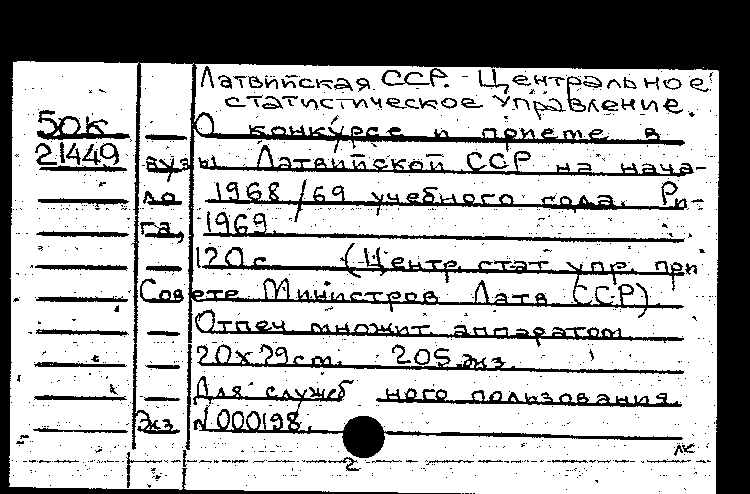 Латвийская ССР. Центральное
статистическое управление.
50к О конкурсе и приеме в
21449 вузы Латвийской ССР на нача-
ло 1968/69 учебного года. Ри-
га, 1969.
120с (Центр. стат упр. при
Совете Министров Латв ССР)
Отпеч множит аппаратом
20х29см. 205 экз.
Для служебного пользования.
Экз N000198.
лк
2